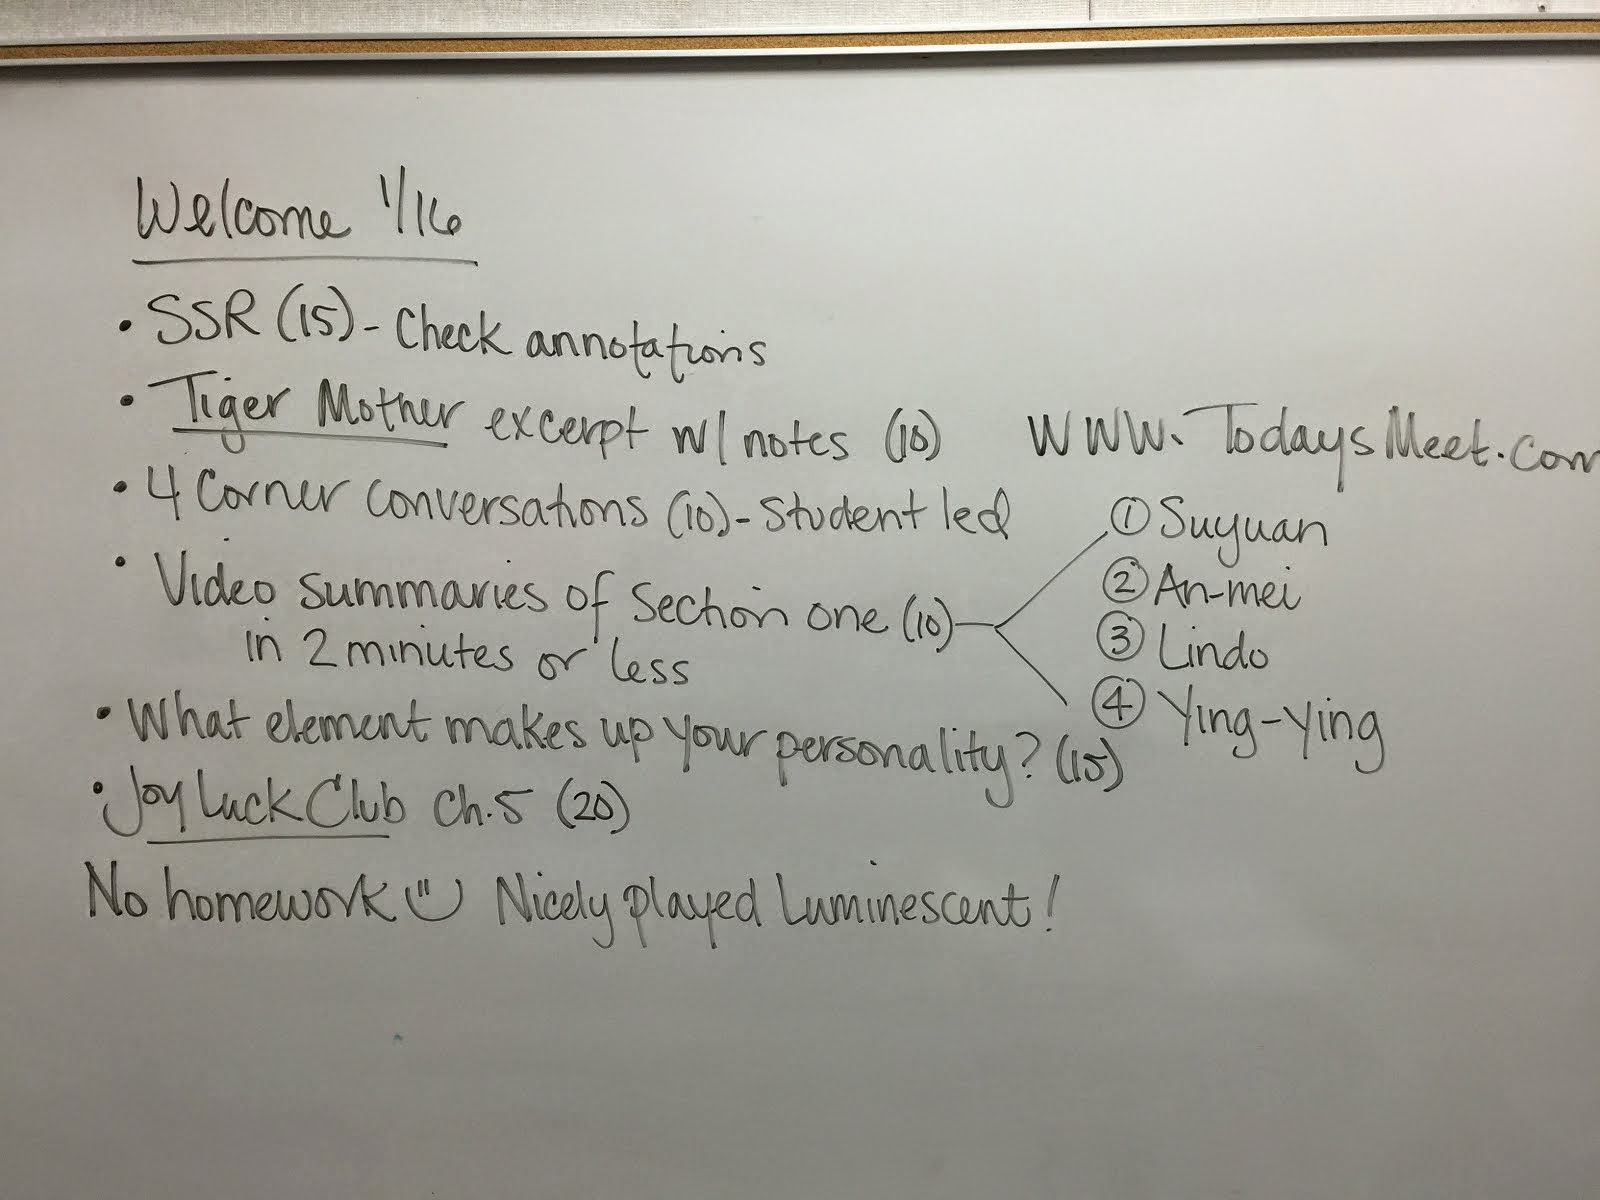 Welcome 1/16
• SSR (15) - Check annotations
• Tiger Mother excerpt w/ notes (10)
www.TodaysMeet.com
• 4 Corner conversations (10) - Student led
• Video summaries of Section one (10)
in 2 minutes or less
① Suyuan
② An-mei
③ Lindo
④ Ying-ying
• What element makes up your personality? (15)
• Joy Luck Club Ch. 5 (20)
No homework Nicely played Luminescent!